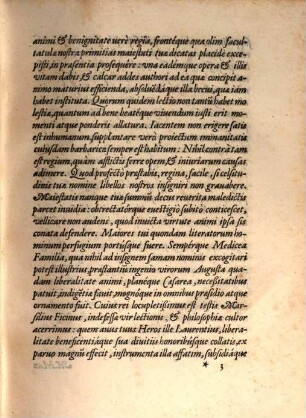 animi & benignitate uerè regia, frontéque qua olim facul-
tatulæ nostræ primitias maiestati tuæ decatas placidè exce-
pisti, in præsentia prosequêre: vna eademque opera & illis
vitam dabis & calcar addes authori ad ea quæ concipit ani-
mo maturius efficienda, absoluédaque illa breui, quæ iam
habet instituta. Quorum quidem lectio non tantũ habet mo-
lestiæ, quantum ad bene beatéque viuendum iusti erit mo-
menti atque ponderis allatura. Iacentem non erigere satis
est inhumanum, supplantare verò proiectum immanitatis
cuiusdam barbaricæ semper est habitum: Nihil contrà tam
est regium, quàm afflictis ferre opem, & iniuriarum causas
adimere. Quod profectò præstabis, regina, facilè, si celsitu-
dinis tuæ nomine libellos nostros insigniri non grauabere.
Maiestatis nanque tuæ summũ decus reuerita maledictis
parcet inuidia: obtrectatorúmque euestigiò subitò conticescet,
vellicare non audens, quod inuicta virtute animi ipsa sis
conata defendere. Maiores tui quondam literatorum ho-
minum perfugium portúsque fuere. Sempérque Medicea
Familia, qua nihil ad insignem famam nominis excogitari
potest illustrius, præstantiũ ingenio virorum Augusta qua-
dam liberalitate animi, planéque Cæsarea, necessitatibus
patuit, indigétia fauit, magnóque in omnibus præsidio atque
ornamento fuit. Cui rei locupletissimus est testis Mar-
silius Ficinus, indefessæ vir lectionis, & philosophiæ cultor
acerrimus: quem auus tuus Heros ille Laurentius, libera-
litate beneficentiáque sua diuitiis honoribúsque collatis, ex
paruo magnũ effecit, instrumenta illi affatim, subsidiáque
* 3